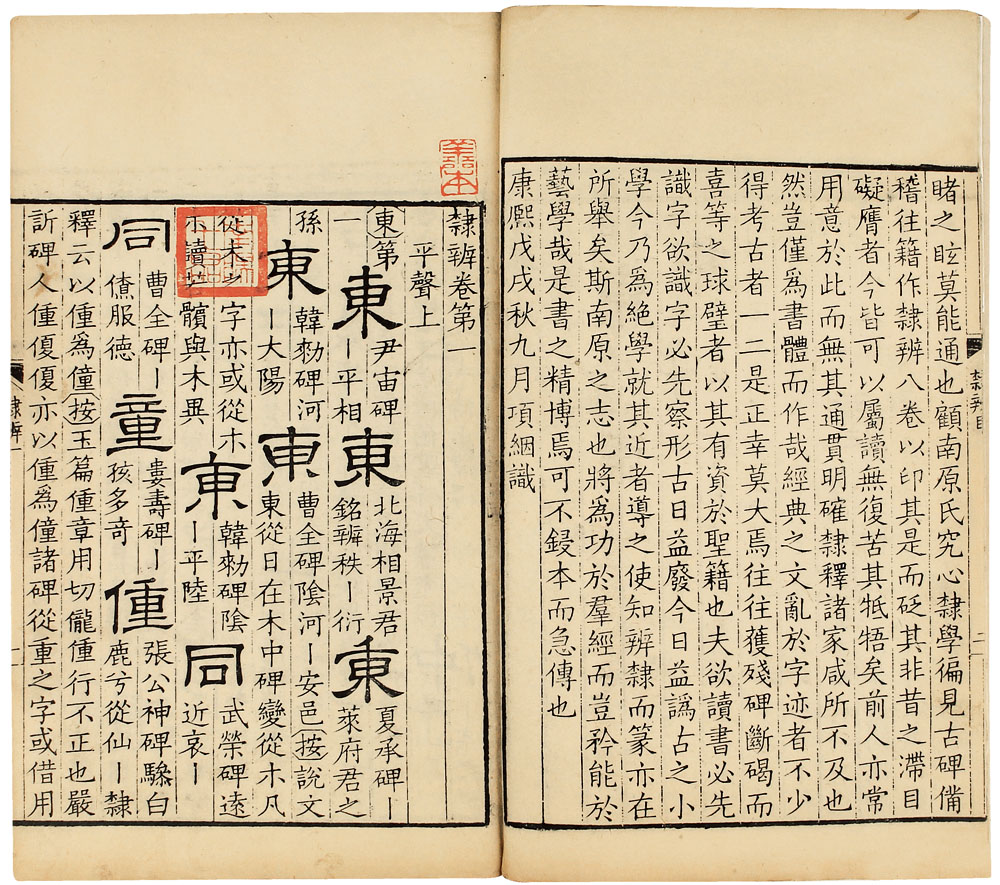 睹之眩莫能通也顧南原氏究心隸學徧見古碑備
稽往籍作隸辨八卷以印其是而砭其非昔之滯目
礙膺者今皆可以屬讀無復苦其牴牾矣前人亦常
用意於此而無其通貫明確隸釋諸家咸所不及也
然豈僅爲書體而作哉經典之文亂於字迹者不少
得考古者一二是正幸莫大焉往往獲殘碑斷碣而
喜等之球璧者以其有資於聖籍也夫欲讀書必先
識字欲識字必先察形古日益廢今日益譌古之小
學今乃爲絕學就其近者導之使知辨隸而篆亦在
所舉矣斯南原之志也將爲功於羣經而豈矜能於
藝學哉是書之精博焉可不鋟本而急傳也
康熙戊戌秋九月項絪識
隸辨目
二
隸辨卷第一
平聲上
東第一東尹宙碑—平相東北海相景君銘辨秩—衍東夏承碑—萊府君之
孫東韓勑碑河—大陽東曹全碑陰河—安邑按說文東從日在木中碑變從朩凡
從木之字亦或從朩朩讀若髕與木異東韓勑碑陰—平陸同武榮碑遠近哀—
同曹全碑—僚服德童婁壽碑—孩多奇僮張公神碑驂白鹿兮從仙—隸
釋云以僮爲僮按玉篇僮章用切儱僮行不正也嚴
訢碑人僮優優亦以僮爲僮諸碑從重之字或借用
隸辨一
一